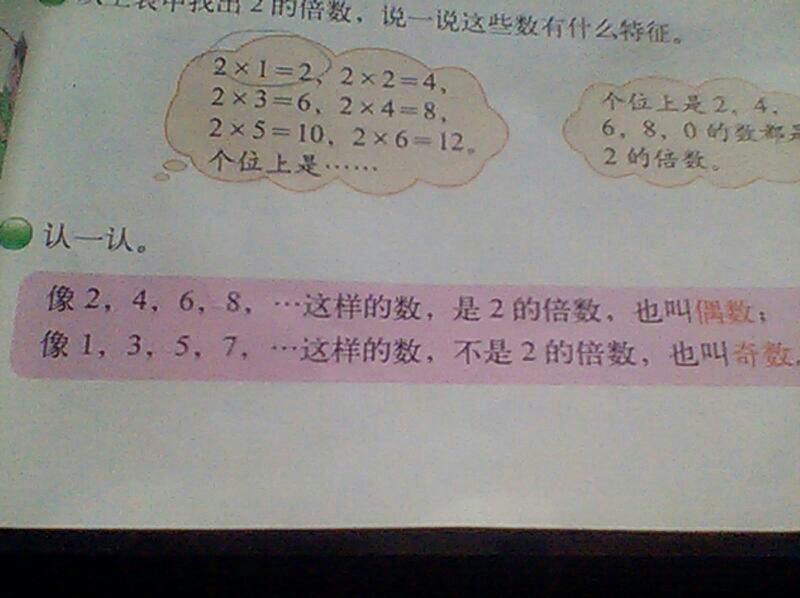 从上表中找出 2 的倍数，说一说这些数有什么特征。
2×1=2，2×2=4，
2×3=6，2×4=8，
2×5=10，2×6=12。
个位上是……
个位上是 2、4、
6、8、0 的数都是
2 的倍数。
认一认。
像 2，4，6，8，…这样的数，是 2 的倍数，也叫偶数；
像 1，3，5，7，…这样的数，不是 2 的倍数，也叫奇数。